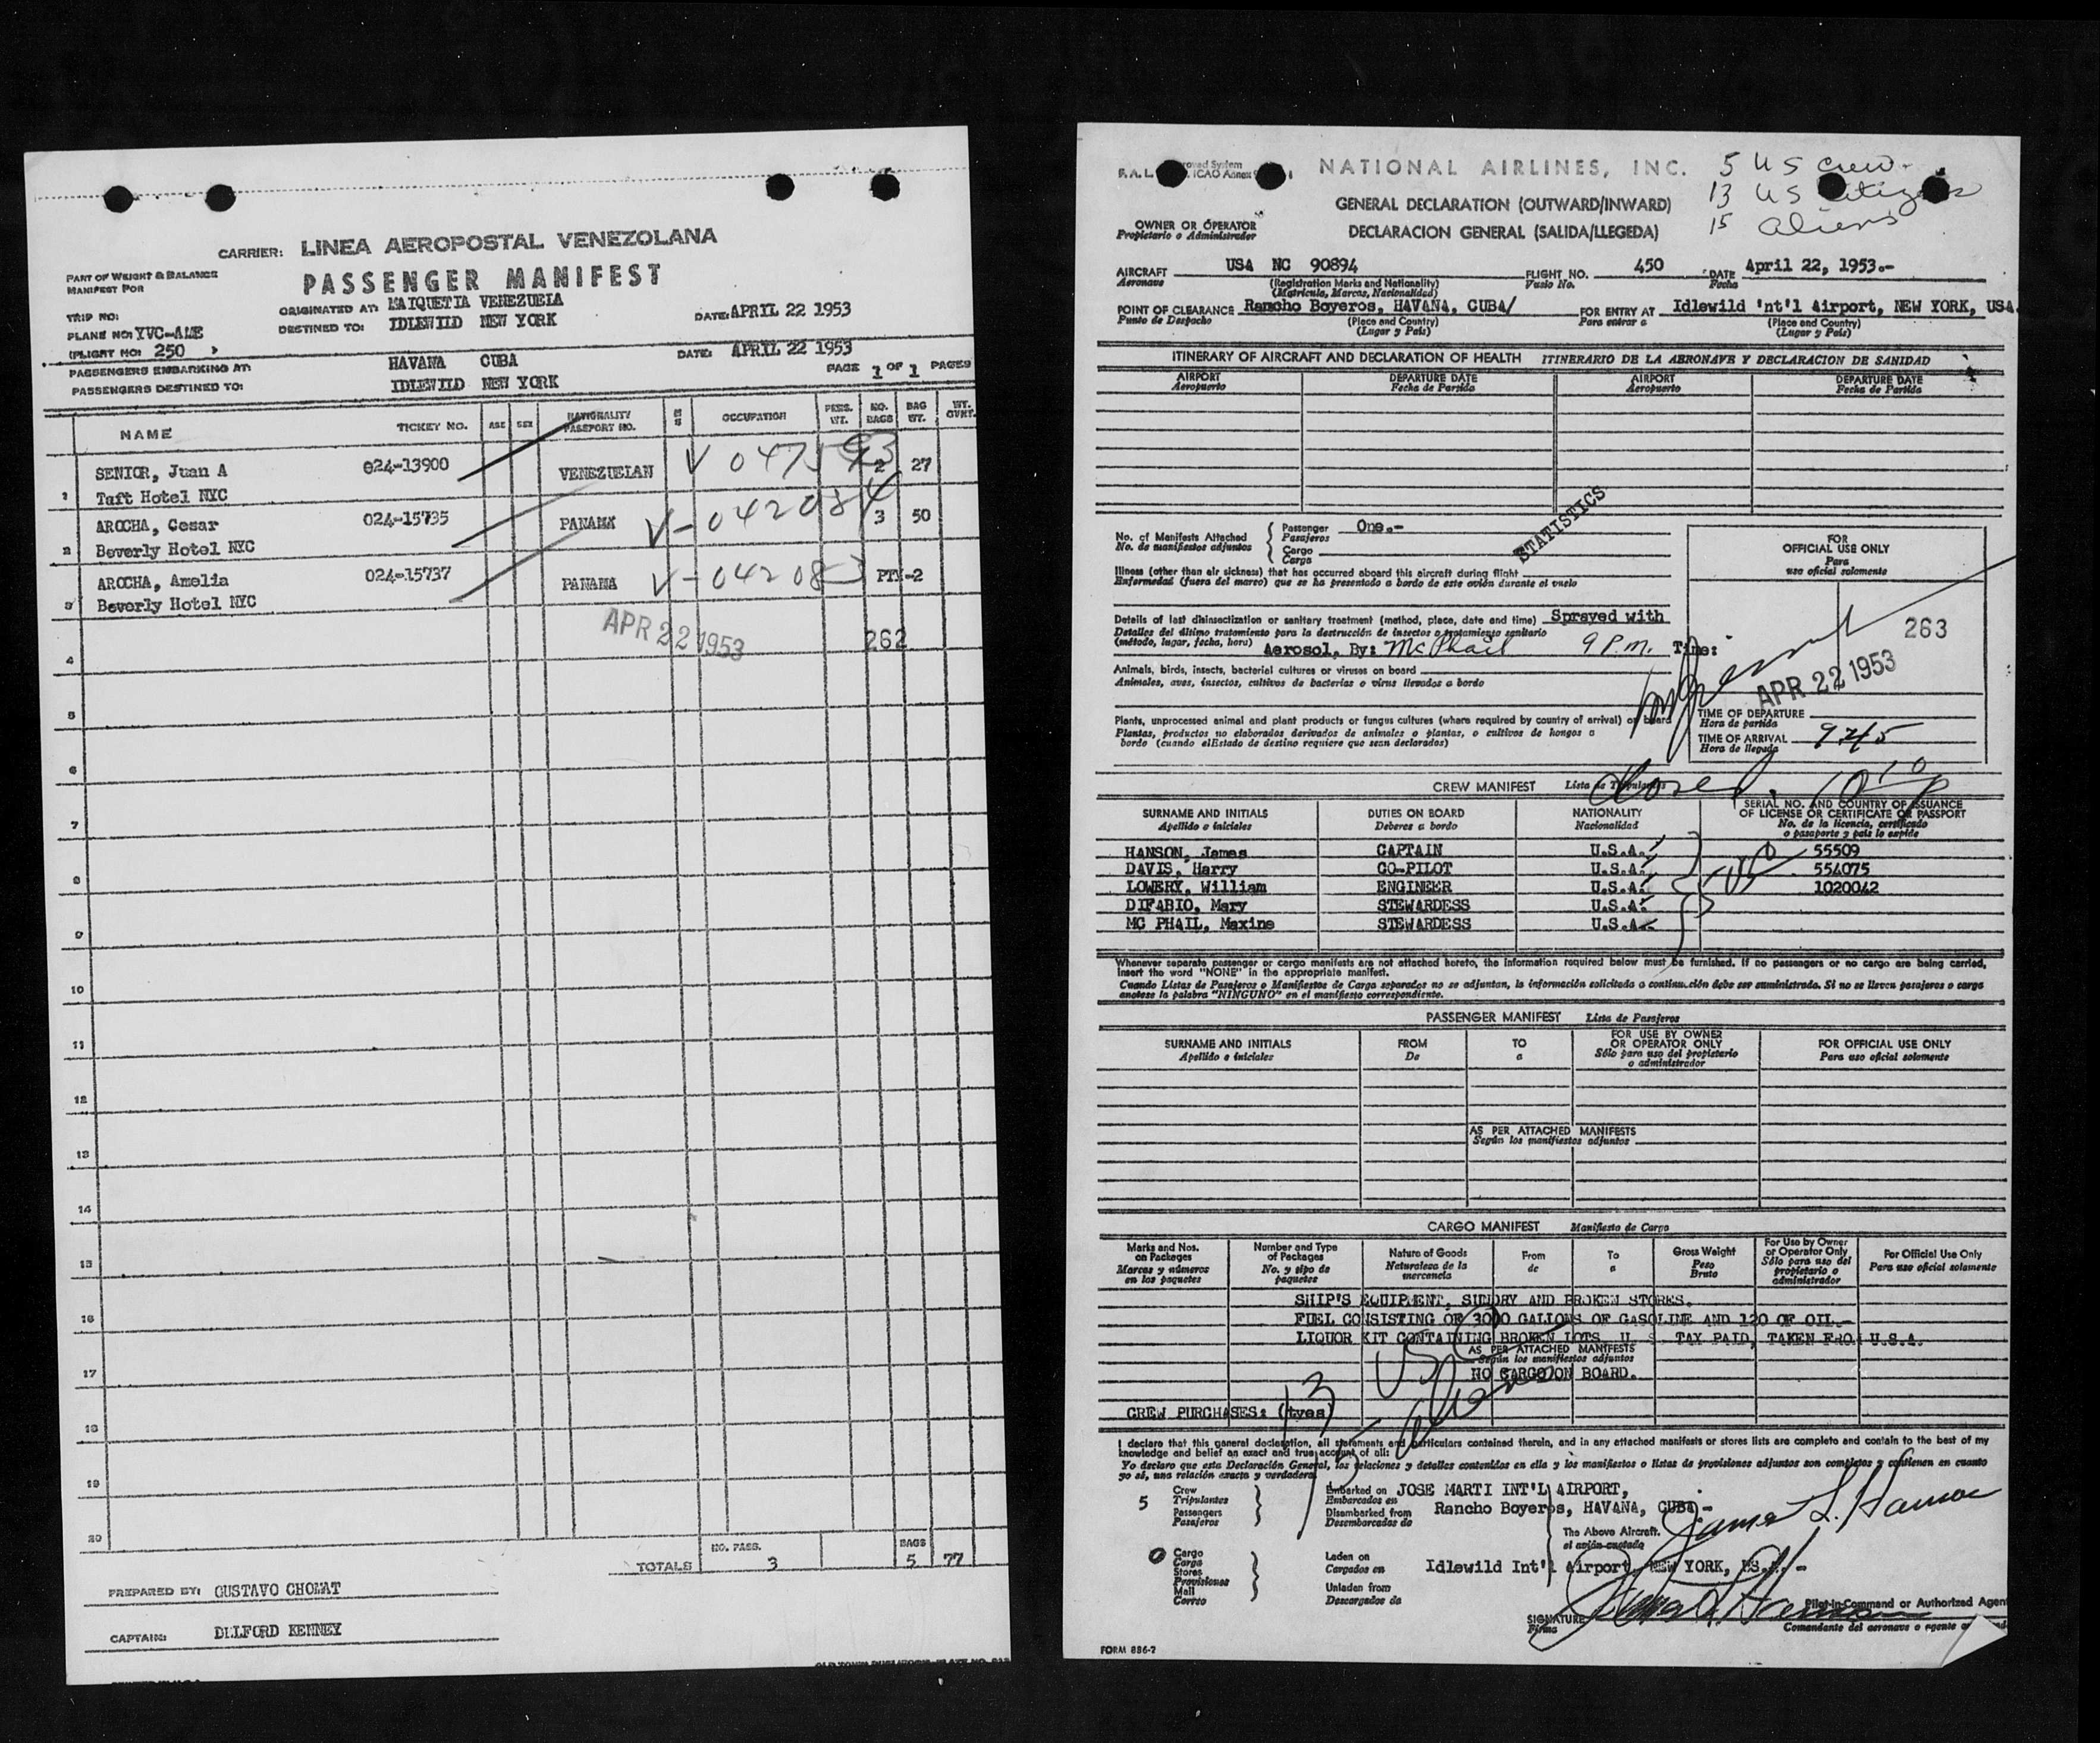 CARRIER: LINEA AEROPOSTAL VENEZOLANA
PART OF WEIGHT & BALANCE
MANIFEST FOR
PASSENGER MANIFEST
TRIP NO:
ORIGINATED AT: MAIQUETIA VENEZUELA
DATE: APRIL 22 1953
PLANE NO: YVC-AME
DESTINED TO: IDLEWILD NEW YORK
(FLIGHT NO: 250 )
PASSENGERS EMBARKING AT: HAVANA CUBA
DATE: APRIL 22 1953
PASSENGERS DESTINED TO: IDLEWILD NEW YORK
PAGE 1 OF 1 PAGES
NAME TICKET NO. AGE SEX NATIONALITY PASSPORT NO. OCCUPATION PASS. WT. NO. BAGS BAG WT. WT. OVHT.
SENIOR, Juan A 024-13900 VENEZUELAN V 0471593 2 27
1 Taft Hotel NYC
AROCHA, Cesar 024-15735 PANAMA V-042084 3 50
2 Beverly Hotel NYC
AROCHA, Amelia 024-15737 PANAMA V-042083 PTY-2
3 Beverly Hotel NYC
APR 22 1953
262
4
5
6
7
8
9
10
11
12
13
14
15
16
17
18
19
20
TOTALS NO. PASS. 3 BAGS 5 77
PREPARED BY: GUSTAVO CHOMAT
CAPTAIN: DELFORD KENNEY
F. A. L. ICAO Annex
NATIONAL AIRLINES, INC.
5 US crew-
13 US citizens
15 aliens
GENERAL DECLARATION (OUTWARD/INWARD)
OWNER OR OPERATOR
Propietario o Administrador
DECLARACION GENERAL (SALIDA/LLEGEDA)
AIRCRAFT USA NC 90894 FLIGHT NO. 450 DATE April 22, 1953.-
Aeronave (Registration Marks and Nationality) Vuelo No. Fecha
(Matricula, Marcas, Nacionalidad)
POINT OF CLEARANCE Rancho Boyeros, HAVANA, CUBA/ FOR ENTRY AT Idlewild 'nt'l Airport, NEW YORK, USA.
Punto de Despacho (Place and Country) Para entrar a (Place and Country)
(Lugar y País) (Lugar y País)
ITINERARY OF AIRCRAFT AND DECLARATION OF HEALTH ITINERARIO DE LA AERONAVE Y DECLARACION DE SANIDAD
AIRPORT DEPARTURE DATE AIRPORT DEPARTURE DATE
Aeropuerto Fecha de Partida Aeropuerto Fecha de Partida
STATISTICS
No. of Manifests Attached
No. de manifiestos adjuntos
Passenger One.-
Pasajeros
Cargo
Carga
Illness (other than air sickness) that has occurred aboard this aircraft during flight
Enfermedad (fuera del mareo) que se ha presentado a bordo de este avión durante el vuelo
Details of last dhinsectization or sanitary treatment (method, place, date and time) Sprayed with
Detalles del último tratamiento para la destrucción de insectos o tratamiento sanitario
(método, lugar, fecha, hora) Aerosol, By: McPhail 9 P.M. Time:
Animals, birds, insects, bacterial cultures or viruses on board
Animales, aves, insectos, cultivos de bacterias o virus llevados a bordo
Plants, unprocessed animal and plant products or fungus cultures (where required by country of arrival) on board
Plantas, productos no elaborados derivados de animales o plantas, o cultivos de hongos a
bordo (cuando elEstado de destino requiere que sean declarados)
FOR
OFFICIAL USE ONLY
Para
uso oficial solamente
263
APR 22 1953
TIME OF DEPARTURE
Hora de partida
TIME OF ARRIVAL 945
Hora de llegada
CREW MANIFEST Lista de Tripulantes
SURNAME AND INITIALS DUTIES ON BOARD NATIONALITY SERIAL NO. AND COUNTRY OF ISSUANCE OF LICENSE OR CERTIFICATE OR PASSPORT
Apellido e iniciales Deberes a bordo Nacionalidad No. de la licencia, certificado o pasaporte y país lo expide
HANSON, James CAPTAIN U.S.A. 55509
DAVIS, Harry CO-PILOT U.S.A. 554075
LOWERY, William ENGINEER U.S.A. 1020042
DIFABIO, Mary STEWARDESS U.S.A.
MC PHAIL, Maxine STEWARDESS U.S.A.
Whenever separate passenger or cargo manifests are not attached hereto, the information required below must be furnished. If no passengers or no cargo are being carried,
insert the word "NONE" in the appropriate manifest.
Cuando Listas de Pasajeros o Manifiestos de Carga separados no se adjuntan, la información solicitada a continuación debe ser suministrada. Si no se lleven pasajeros o carga
anótese la palabra "NINGUNO" en el manifiesto correspondiente.
PASSENGER MANIFEST Lista de Pasajeros
SURNAME AND INITIALS FROM TO FOR USE BY OWNER OR OPERATOR ONLY FOR OFFICIAL USE ONLY
Apellido e iniciales De a Sólo para uso del propietario o administrador Para uso oficial solamente
AS PER ATTACHED MANIFESTS
Según los manifiestos adjuntos
CARGO MANIFEST Manifiesto de Carga
Marks and Nos. on Packages Number and Type of Packages Nature of Goods From To Gross Weight For Use by Owner or Operator Only For Official Use Only
Marcas y números en los paquetes No. y tipo de paquetes Naturaleza de la mercancia de a Peso Bruto Sólo para uso del propietario o administrador Para uso oficial solamente
SHIP'S EQUIPMENT, SUNDRY AND BROKEN STORES.
FUEL CONSISTING OF 3000 GALLONS OF GASOLINE AND 120 OF OIL.-
LIQUOR KIT CONTAINING BROKEN LOTS, U. S TAX PAID, TAKEN FROM U.S.A.
AS PER ATTACHED MANIFESTS
Según los manifiestos adjuntos
NO CARGO ON BOARD.
CREW PURCHASES: (tyes)
I declare that this general declaration, all statements and particulars contained therein, and in any attached manifests or stores lists are complete and contain to the best of my
knowledge and belief an exact and true account of all:
Yo declaro que esta Declaración General, las relaciones y detalles contenidos en ella y los manifiestos o listas de provisiones adjuntos son completos y contienen en cuanto
yo sé, una relación exacta y verdadera
5 Crew
Tripulantes
Passengers
Pasajeros
Embarked on JOSE MARTI INT'L AIRPORT,
Embarcados en
Disembarked from Rancho Boyeros, HAVANA, CUBA-
Desembarcados de
The Above Aircraft.
el avión-anotado
James L. Hanson
0 Cargo
Carga
Stores
Provisiones
Mail
Correo
Laden on
Cargados en
Idlewild Int'l Airport, NEW YORK, US.A.-
Unladen from
Descargados de
SIGNATURE
Firma
James L. Hanson
Pilot-in-Command or Authorized Agent
Comandante del aeronave o agente
FORM 886-7